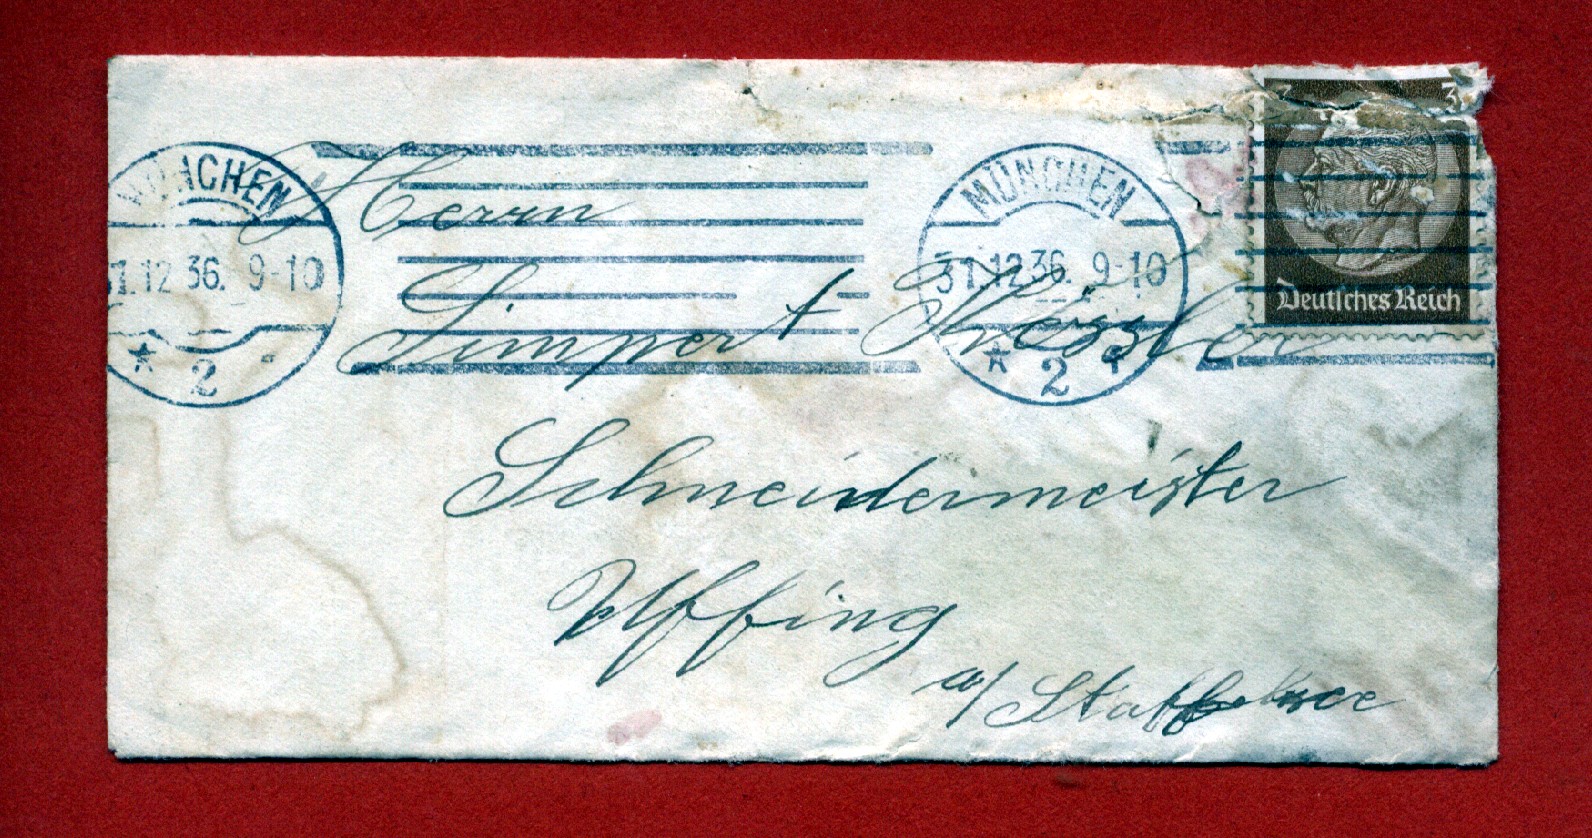 MÜNCHEN
31.12.36. 9-10
2
MÜNCHEN
31.12.36. 9-10
* 2 *
3
Deutsches Reich
Herrn
Simpert Kessler
Schneidermeister
Uffing
a/ Staffelsee